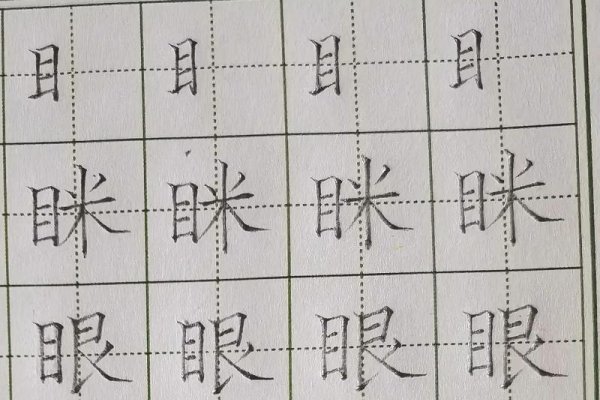 目 目 目 目
眯 眯 眯 眯
眼 眼 眼 眼